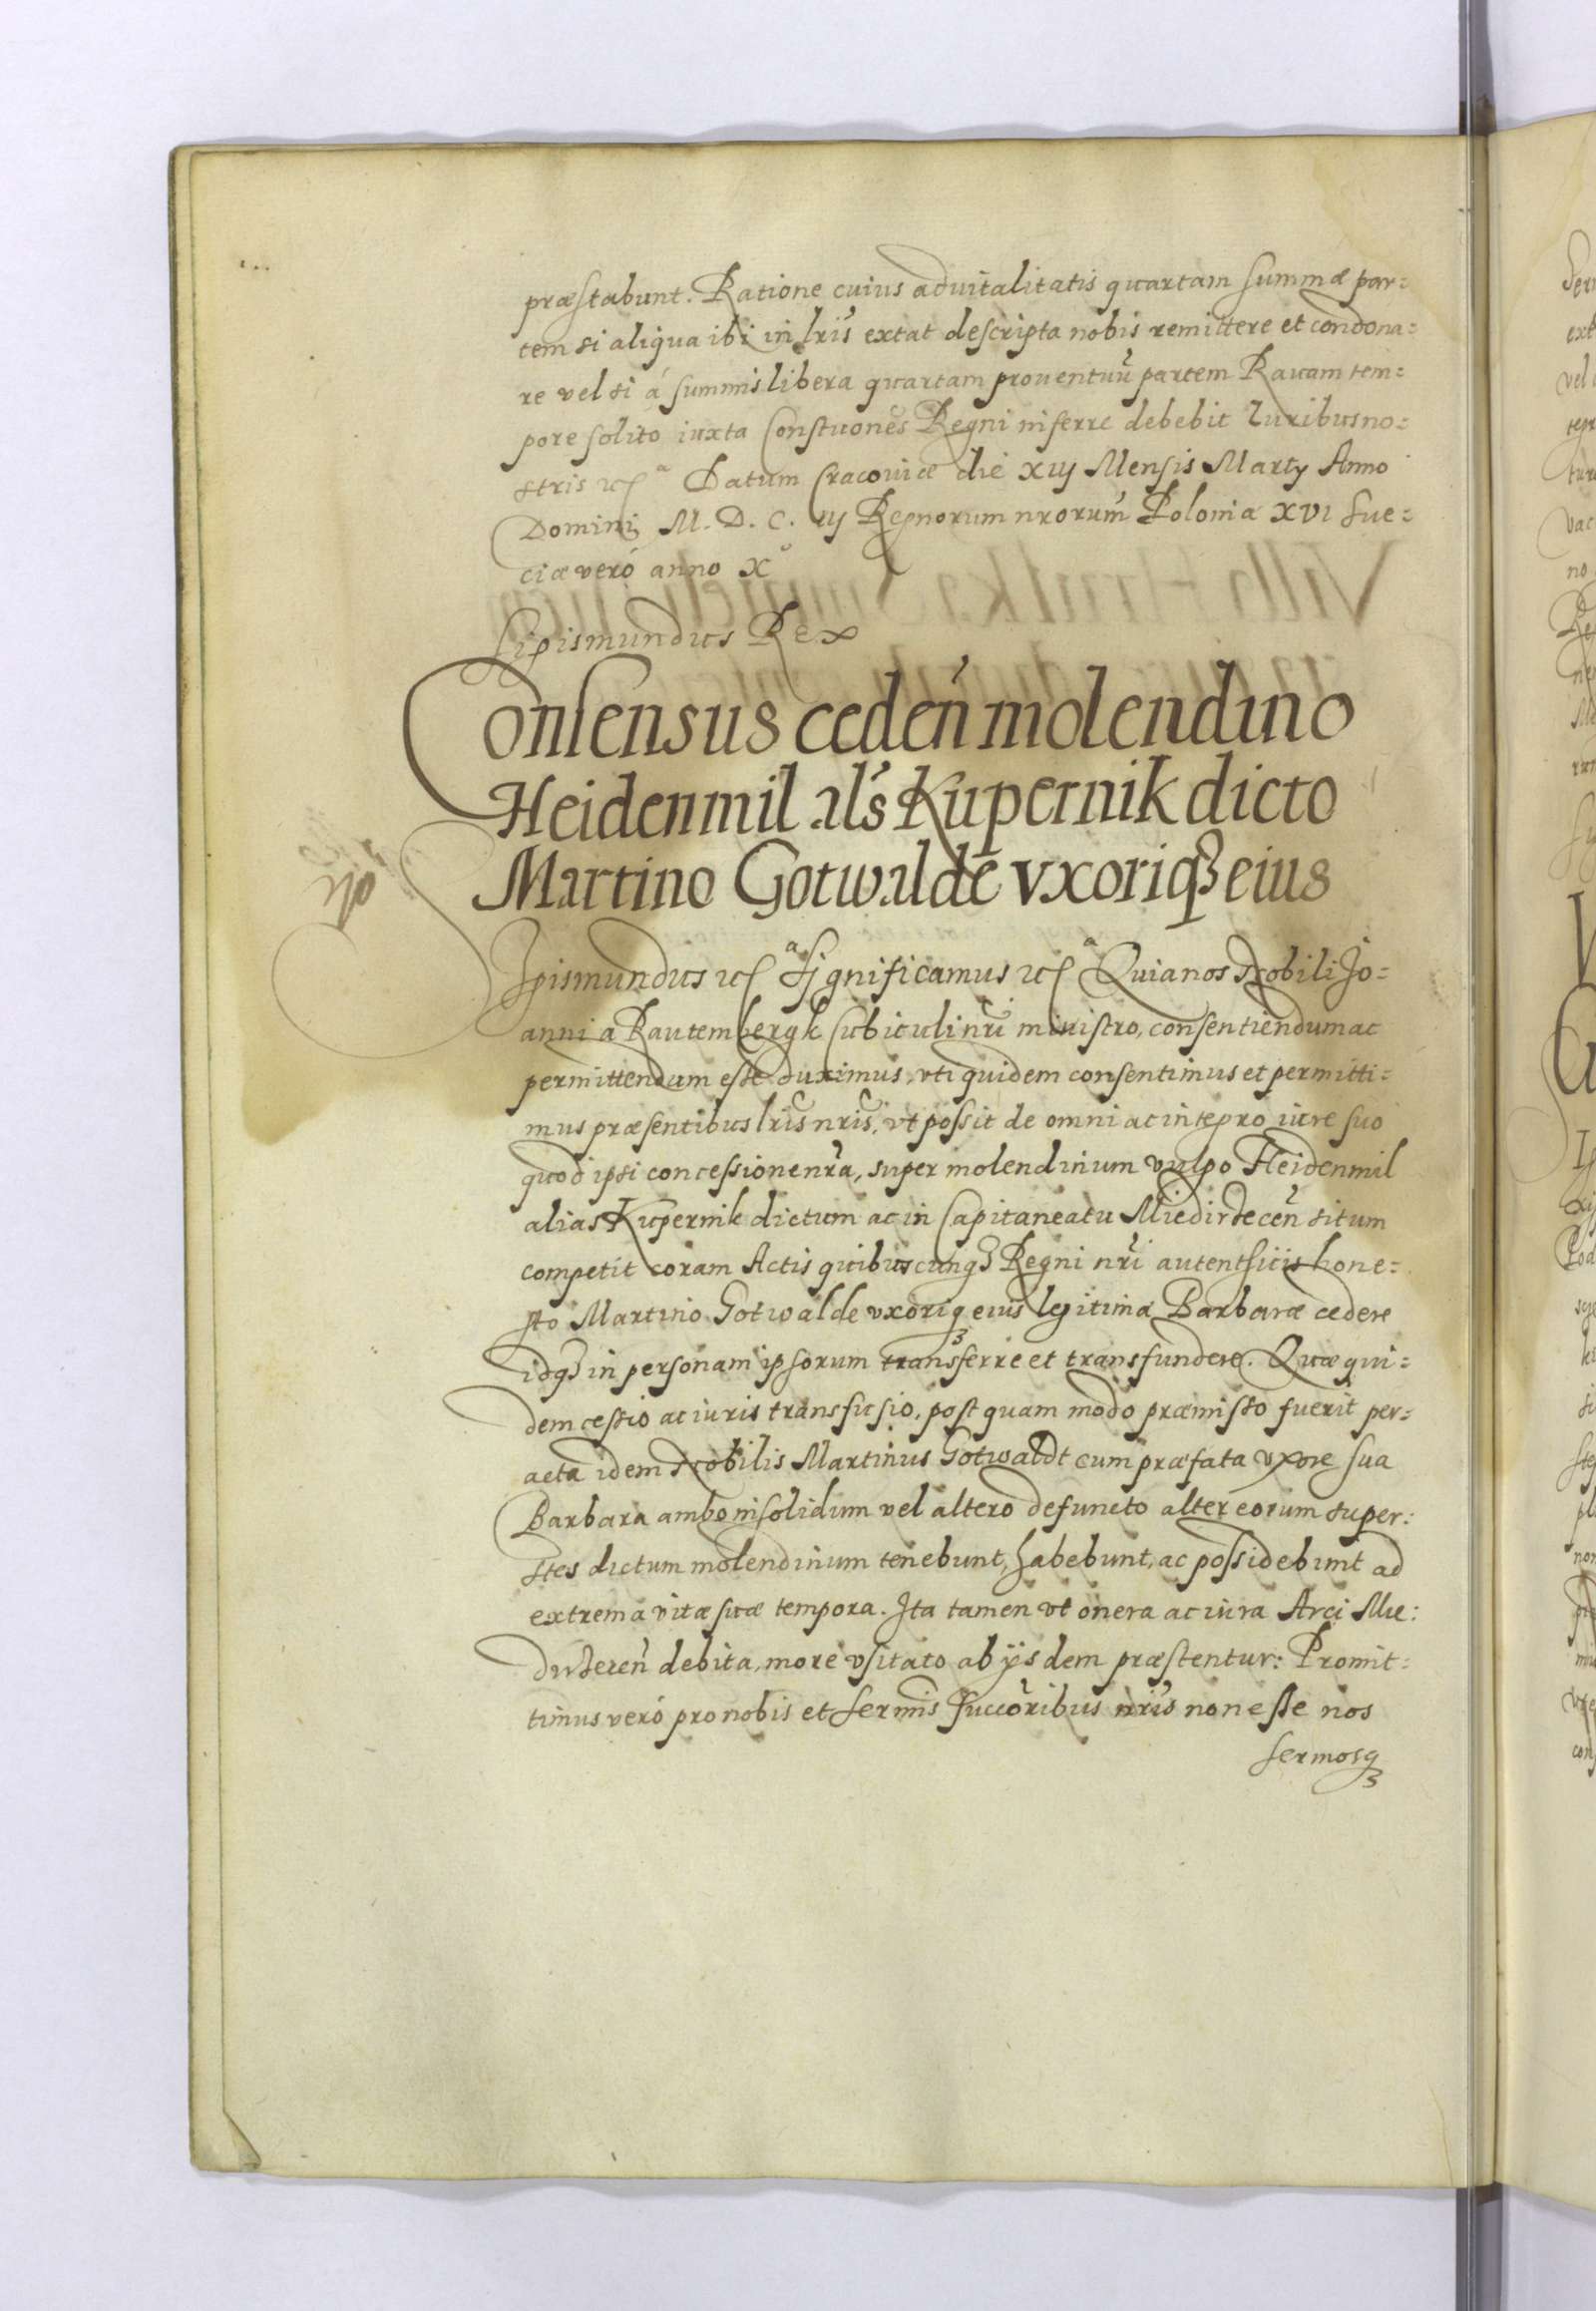 præstabunt. Ratione cuius aduitalitatis quartam summæ par=
tem si aliqua ibi in lr̃is extat descripta nobis remittere et condona=
re vel si á summis libera quartam prouentuũ partem Rauam tem=
pore solito iuxta Constuones Regni inferre debebit Iuribus no=
stris etc͂ Datum Cracouiæ die XIIJ Mensis Martÿ Anno
Domini M. D. C. IIJ Regnorum nrorum Poloniæ XVI Sue=
ciæ veró anno X°
Sigismundus Rex
Consensus ceden̄ molendino
Heidenmil al̃s Kupernik dicto
Martino Gotwalde vxoriq3 eius
Sigismundus etc͂ Significamus etc͂ Quia nos Nobili Jo=
anni a Rautembergk Cubiculi nr̃i ministro, consentiendum ac
permittendum esse duximus, vti quidem consentimus et permitti=
mus præsentibus lr̃is nr̃is, vt possit de omni ac integro iure suo
quod ipsi concessione nr̃a, super molendinum vulgo Heidenmil
alias Kupernik dictum ac in Capitaneatu Miedirzecen̄ situm
competit coram Actis quibuscunq3 Regni nr̃i autenthicis hone=
sto Martino Gotwalde vxoriq3 eius legitimæ Barbaræ cedere
idq3 in personam ipsorum transferre et transfundere. Quæ qui=
dem cessio ac iuris transfusio, post quam modo præmisso fuerit per=
acta idem Nobilis Martinus Gotwaldt cum præfata vxore sua
Barbara ambo insolidum vel altero defuncto alter eorum super:
stes dictum molendinum tenebunt, habebunt, ac possidebunt ad
extrema vitæ suæ tempora. Ita tamen vt onera ac iura Arci Mie:
dirzecen̄ debita, more vsitato ab ÿsdem præstentur: Promit:
timus veró pro nobis et Sermis succoribus nr̃is non esse nos
Sermosq3